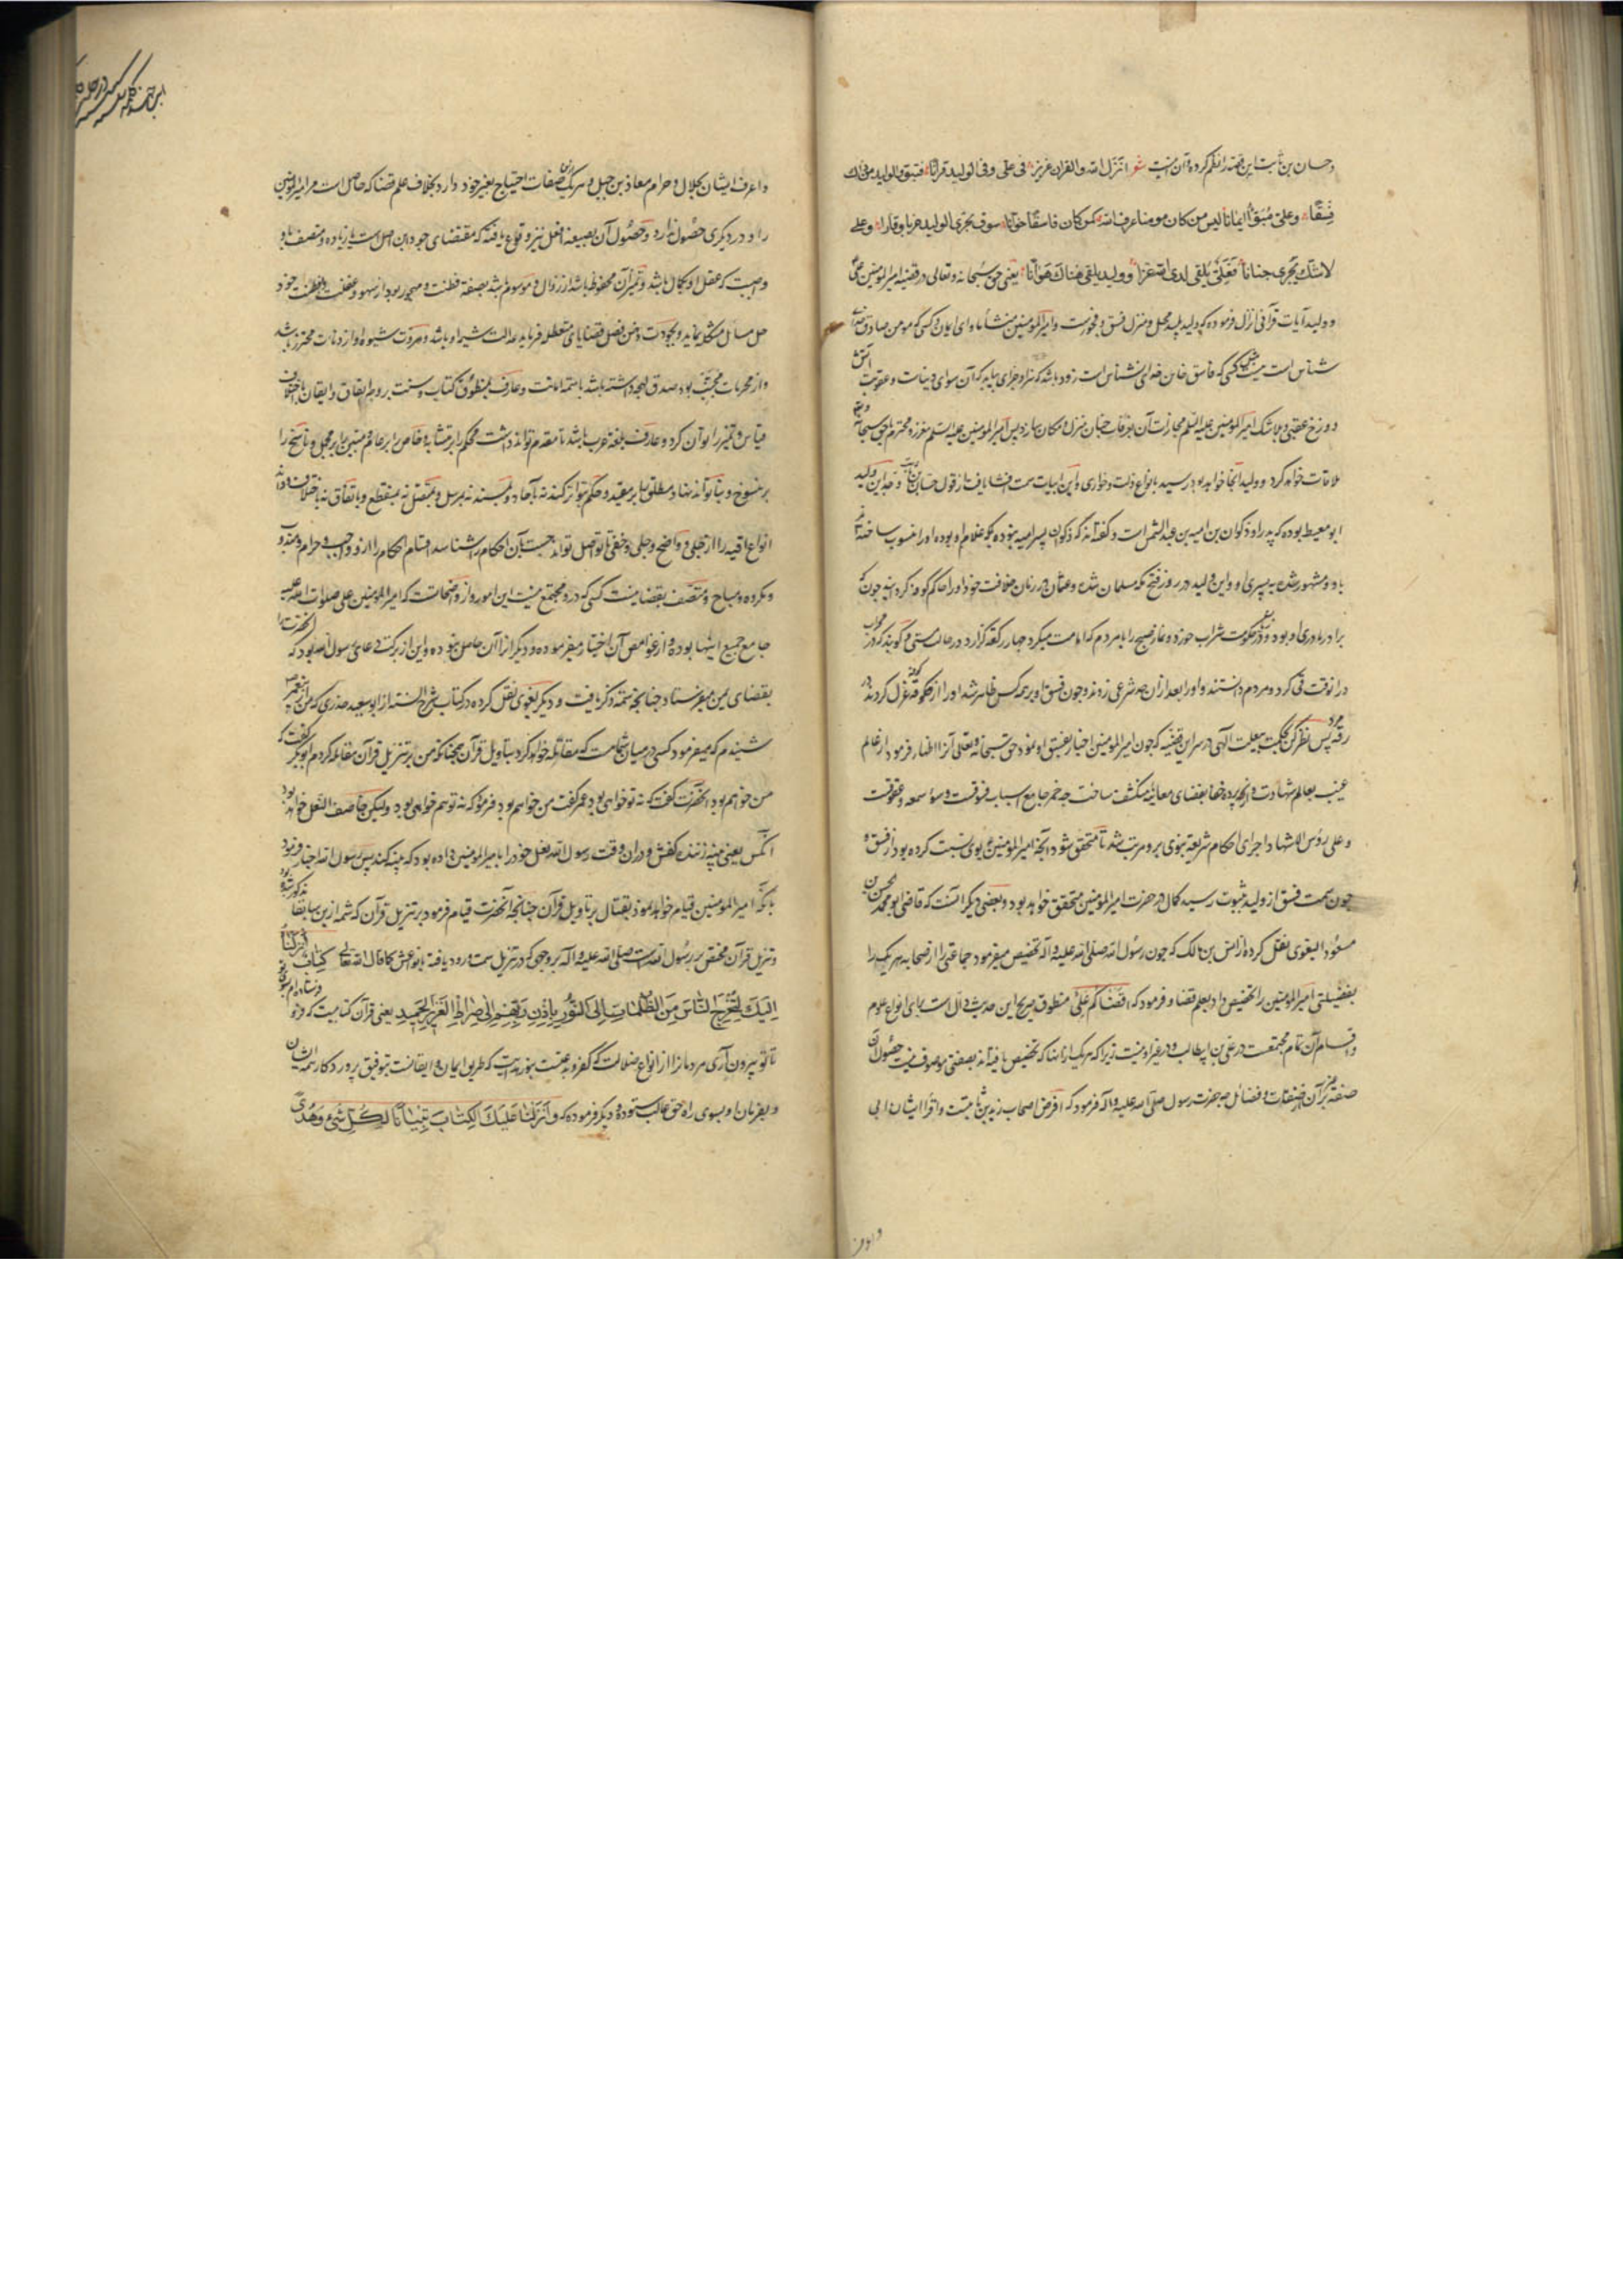 وحسان بن ثابت این قصه را نظم کرده و آن اینست شعر انزل الله والقران عزیز فی علی وفی الولید قرانا فتبوا الولید من ذاک
فسقا وعلی مبوأ ایمانا لیس من کان مومنا عرف الله کمن کان فاسقا خوانا سوف یجزی الولید خزیا ونارا وعلی
لاشک یجزی جنانا فعلی یلقی لدی الله عزا وولید یلقی هناک هوانا یعنی حق سبحانه وتعالی در قضیه امیرالمومنین علی
و ولید آیات قرآنی انزال فرموده که ولید پلید محل و منزل فسق و فجورست و امیرالمومنین منشأ و ماوای ایمان و کسی که مومن صادق
شناس است نیست مثل کسی که فاسق خاین خدای نشناس است زود باشد که سزا و جزای بیابد که آن سوای و عقوبت آتش
دوزخ عقبی و بلاشک امیرالمومنین علیه السلم مجازات آن بغرفات جنان منزل و مکان سازد پس امیرالمومنین علیه السلم معزز و محترم با حق سبحانه
ملاقات خواهد کرد و ولید آنجا خواهد رسید بانواع ذلت و خواری و این ابیات سمت افشا یافت از قول حسان بن ثابت و جد این ولید
ابو معیط بوده که پدر او ذکوان بن امیه بن عبدالشمس است و گفته‌اند که ذکوان پسر امیه نبوده بلکه غلام او بوده و او را منسوب ساخته
باو و مشهور شده به پسری او و این ولید در روز فتح مکه مسلمان شده و عثمان در زمان خلافت خود او را حاکم کوفه کردانید چون که
برادر مادری او بود و در حکومت شراب خورده و نماز صبح را با مردم که امامت میکرد چهار رکعت گزارد در حالت مستی و گویند که در محراب
در آنوقت قی کرد و مردم دانستند و او را بعد از آن حد شرعی زدند و چون فسق او بر همه کس ظاهر شد او را از حکومت کوفه عزل کردند
پس نظر کن بحکمت الهی در سر این قضیه که چون امیرالمومنین اخبار بفسق او نمود حق سبحانه و تعالی آنرا اظهار فرمود از عالم
غیب بعالم شهادت و آنچه در پرده خفا بفضای معاینه منکشف ساخت چه خمر جامع اسباب فسوقست و سوء سمعه و عقوقت
و علی رؤس الاشهاد اجرای احکام شریعه نبوی برو مرتب شد تا متحقق شود آنچه امیرالمومنین بوی نسبت کرده بود از فسق و
چون سمت فسق از ولید بثبوت رسید کمال در حضرت امیرالمومنین متحقق خواهد بود و بعضی دیگر آنست که قاضی ابو محمد الحسین بن
مسعود البغوی نقل کرده از انس بن مالک که چون رسول الله صلی الله علیه و آله تخصیص میفرمود جماعتی را از صحابه هر یک را
بفضیلتی امیرالمومنین را تخصیص داد بعلم قضا و فرمود که اقضاکم علی منطوق صریح این حدیث دال است برای انواع علوم
و اقسام آن تمام مجتمعست در علی بن ابیطالب و در غیر او نیست زیرا که هر یک از اینها که تخصیص یافته‌اند بصفتی موصوف نیست حصول آن
صفت بر آن از صفات و فضائل چه حضرت رسول صلی الله علیه و آله فرمود که افرض اصحاب زید بن ثابتست و اقرا ایشان ابی
و اعرف ایشان بحلال و حرام معاذ بن جبل و هر یک ازین صفات احتیاج بغیر خود دارد بخلاف علم قضا که حاصل است مر امیرالمومنین
را و در دیگری حصول ندارد و حصول آن بصیغه افعل نیز وقوع یافته که مقتضای وجود این اصل است با زیاده و متصف باو
واجبست که عقل او بکمال باشد و تمیز آن محفوظ باشد از زوال و موسوم باشد بصفة فطنت و مهجور بود از سهو و غفلت و بفطنت خود
حل مسائل مشکله نماید و بجودت ذهن فصل قضایای متعطله فرماید عدالت شیوه او باشد و مروت شیوه او از دنائت محترز باشد
و از محرمات مجتنب بود صدق لهجه داشته باشد با سمت امانت و عارف بمنطوق کتاب و سنت بر وجه اتفاق و ایقان باختلاف
قیاس و تمیز را بتوان کرد و عارف بلغة عرب باشد تا مقدم تواند داشت محکم را بر متشابه و خاص را بر عام و مبین را بر مجمل و ناسخ را
بر منسوخ و بنا تواند نهاد مطلق را بر مقید و حکم بتواتر کند نه بآحاد و بمسند نه بمرسل و بمتصل نه بمنقطع و باتفاق نه باختلاف و داند
انواع اقیسه را از جلی و واضح و خفی تا توصل تواند جست بآن احکام را شناسد اقسام احکام را از واجب و حرام و مندوب
و مکروه و مباح و متصف بقضا نیست کسی که درو مجتمع نیست این امور و از واضحاتست که امیرالمومنین علی صلوات الله علیه
جامع جمیع اینها بوده و از غوامض آن اخبار میفرموده و دیگران را آن حاصل نبوده و این از برکت دعای رسول الله بود که آنحضرت را
بقضای یمن میفرستاد چنانچه تتمه ذکر یافت و دیگر بغوی نقل کرده در کتاب شرح السنه از ابو سعید خدری که من از پیغمبر
شنیدم که میفرمود کسی در میان شماست که مقاتله خواهد کرد بتاویل قرآن همچنانکه من بر تنزیل قرآن مقاتله کردم ابوبکر گفت که
من خواهم بود آنحضرت گفت که نه تو خواهی بود عمر گفت من خواهم بود فرمود که نه تو هم خواهی بود ولیکن خاصف النعل خواهد بود
آنکس یعنی پینه زننده کفش و در آن وقت رسول الله نعل خود را بامیرالمومنین داده بود که پینه کند پس رسول الله اخبار فرمود
بآنکه امیرالمومنین قیام خواهد نمود بقتال بر تاویل قرآن چنانچه آنحضرت قیام فرمود بر تنزیل قرآن که شمه ازین سابقا مذکور شد
و تنزیل قرآن مختص بر رسول الله است صلی الله علیه و آله بر وجهی که در تنزیل سمت ورود یافته بانواعش کما قال الله تعالی کتاب انزلناه
الیک لتخرج الناس من الظلمات الی النور باذن ربهم الی صراط العزیز الحمید یعنی قرآن کتابیست که فرستاده‌ام بسوی تو
تا تو بیرون آری مردمانرا از انواع ضلالت که کفر و بدعتست بنور هدایت که طریق ایمان و ایقانست بتوفیق پروردگار ایشان
و بفرمان او بسوی راه حق غالب ستوده و دیگر فرموده که و انزلنا علیک الکتاب تبیانا لکل شیء وهدی